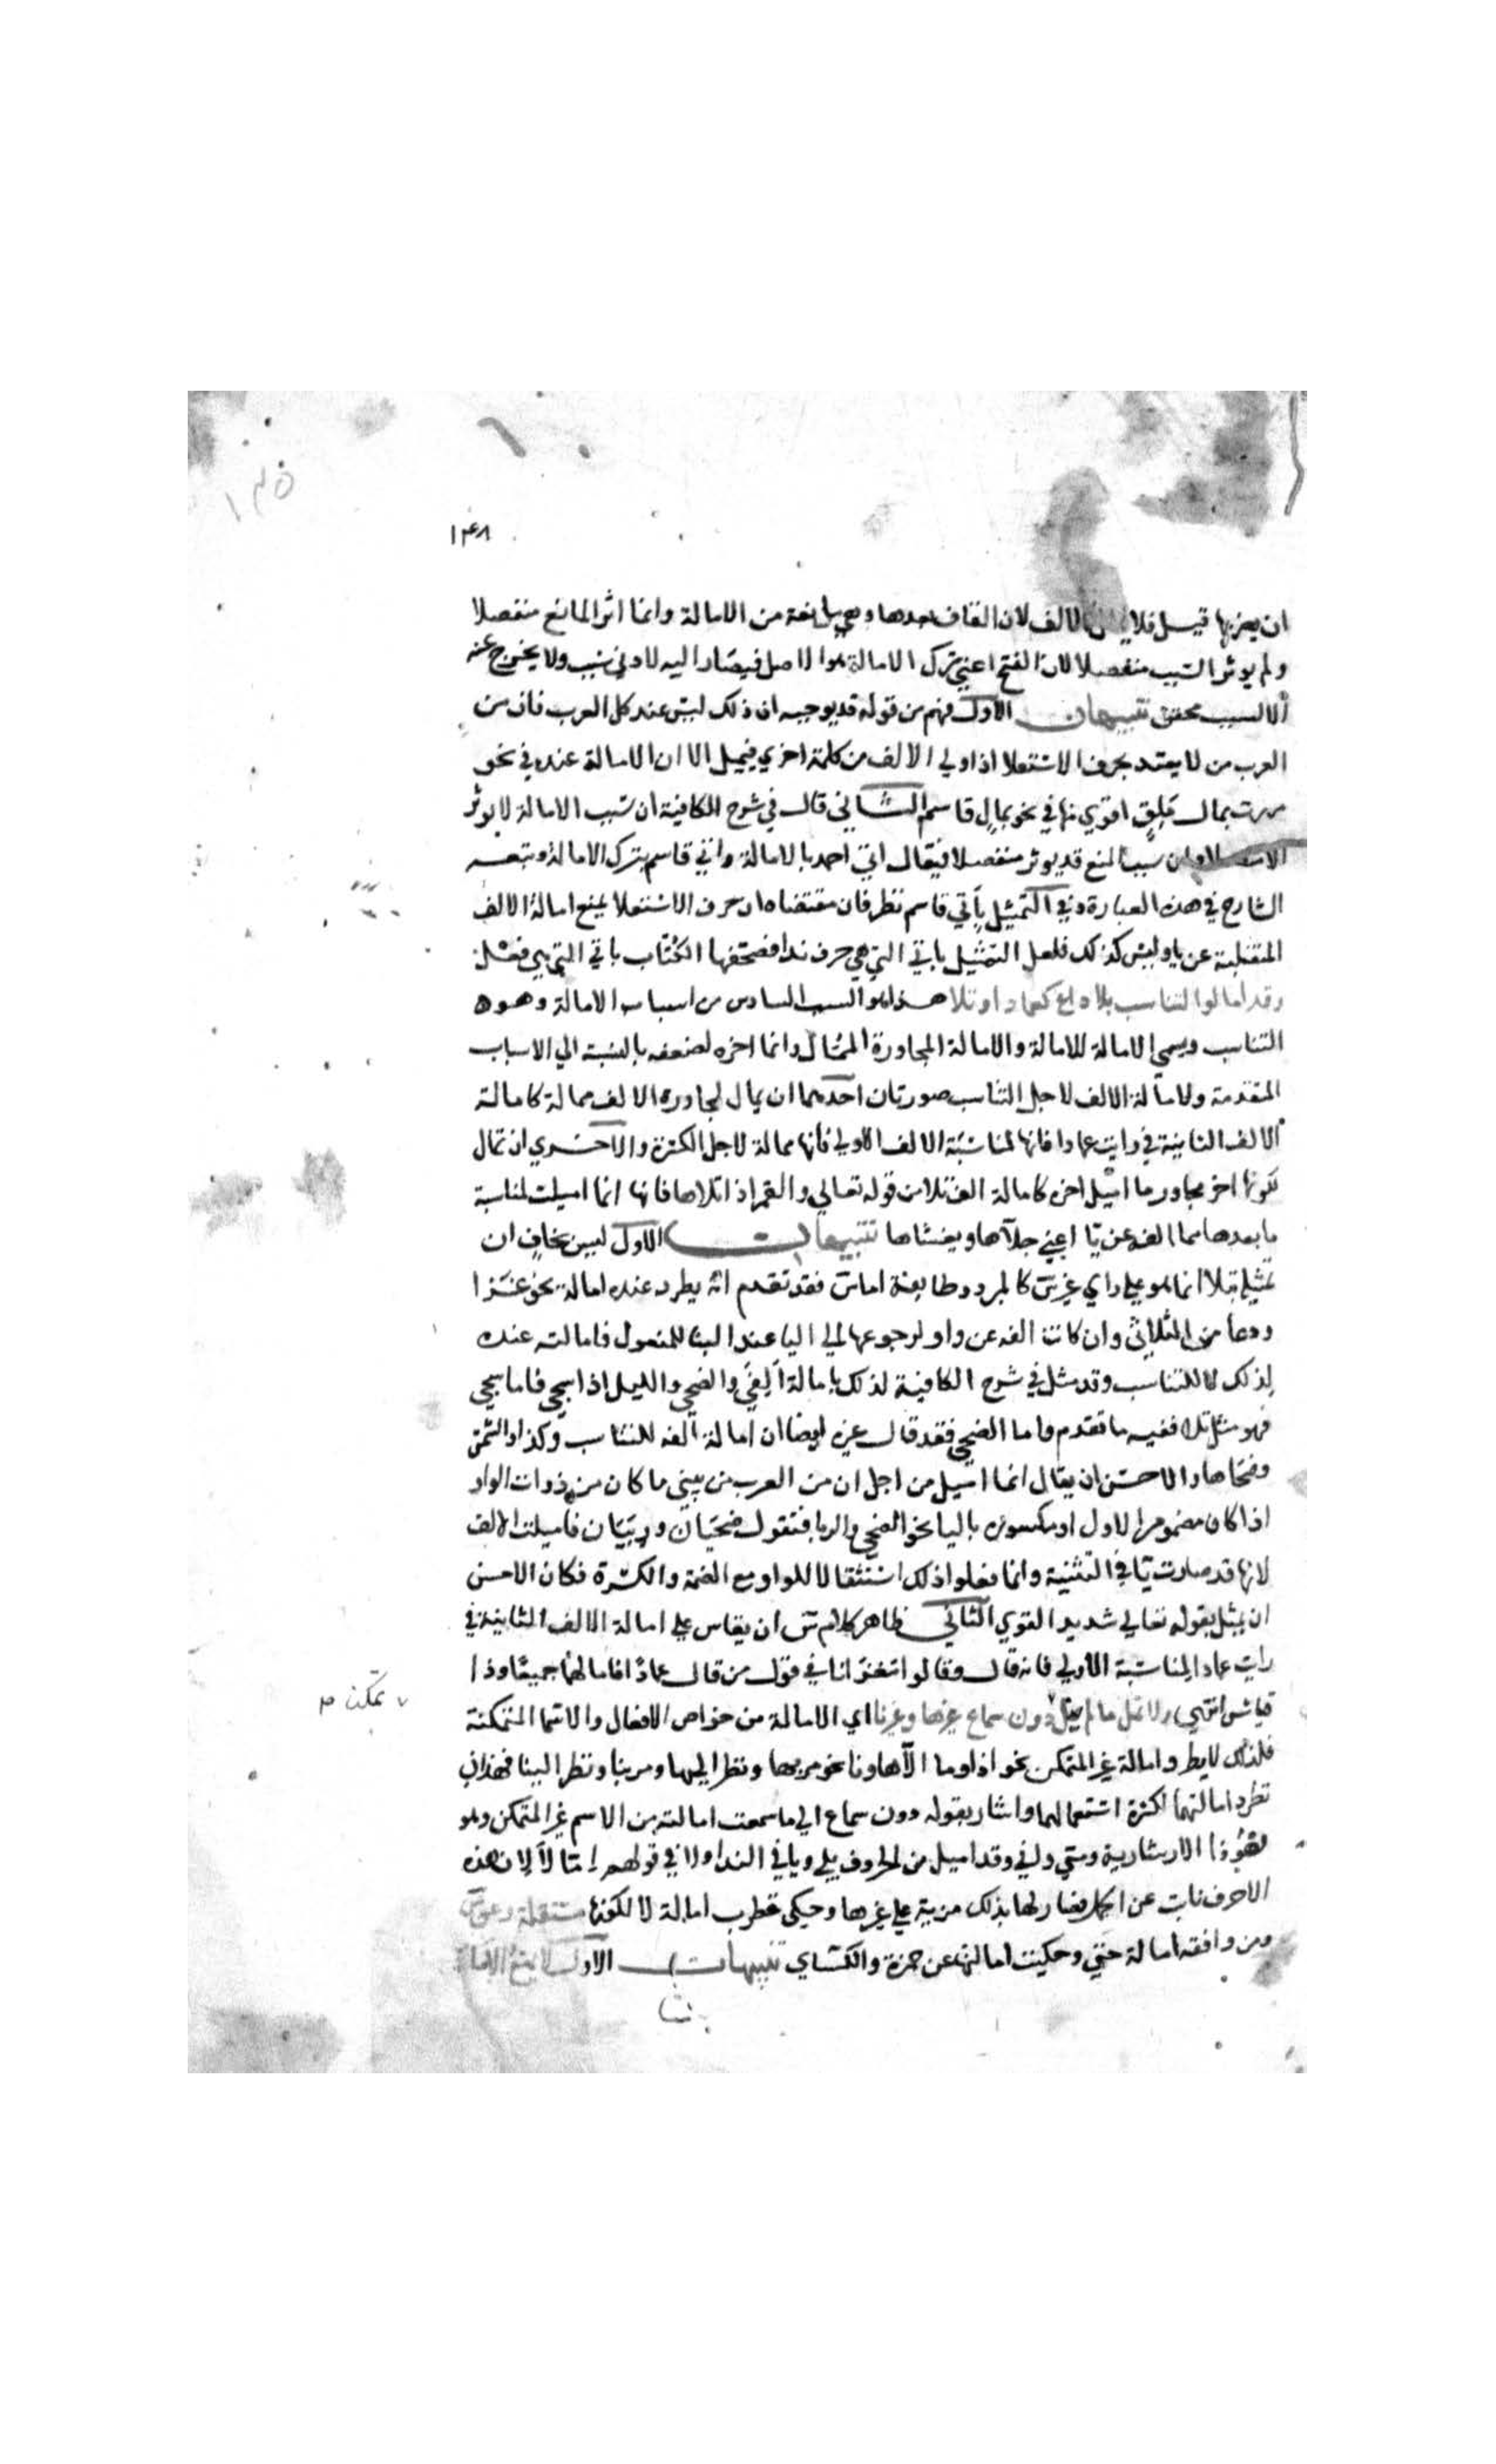 ١٣٥
١٤٨
ان يضربها قبل فلا الالف لان القاف بعدها وهي مانعة من الامالة وانما اثر المانع منفصلا
ولم يوثر السبب منفصلا لان الفتح اعني ترك الامالة هو الاصل فيصار اليه لادني سبب ولا يخرج عنه
الا لسبب محقق تنبيهات الاول فهم من قوله قد يوجبه ان ذلك ليس عند كل العرب فان من
العرب من لا يعتد بحرف الاستعلا اذا ولي الالف من كلمة اخري فيميل الا ان الامالة عنده في نحو
مررت بمال ملق اقوي منها في نحو بمال قاسم الثاني قال في شرح الكافية ان سبب الامالة لا يوثر
الا متصلا وان سبب المنع قد يوثر منفصلا فيقال اتي احمد بالامالة واتي قاسم بترك الامالة وتبعه
الشارح في هذه العبارة وفي التمثيل باتي قاسم نظر فان مقتضاه ان حرف الاستعلا يمنع امالة الالف
المنقلبة عن يا وليس كذلك فلعل التمثيل بايا التي هي حرف ندا فصحفها الكتاب باتي التي هي فعل
وقد امالوا لتناسب بلا داع كعمادا وتلا هذا هو السبب السادس من اسباب الامالة وهو
التناسب ويسمي الامالة للامالة والامالة لمجاورة الممال وانما اخره لضعفه بالنسبة الي الاسباب
المتقدمة ولامالة الالف لاجل التناسب صورتان احدهما ان يمال لمجاورة الالف ممالة كامالة
الالف الثانية في رايت عمادا فانها لمناسبة الالف الاولي فانها ممالة لاجل الكسرة والاخري ان تمال
لكونها اخر مجاور ما اميل اخره كامالة الف تلا من قوله تعالي والقمر اذا تلاها فانها انما اميلت لمناسبة
ما بعدها مما الفه عن يا اعني جلاها ويغشاها تنبيهات الاول ليس بخاف ان
تمثيله بتلا انما هو علي راي غير س كالمبرد وطايفة اما س فقد تقدم انه يطرد عنده امالة نحو غزا
ودعا من الثلاثي وان كانت الفه عن واو لرجوعها الي اليا عند البنا للمفعول فامالته عنده
لذلك لا للتناسب وقد مثل في شرح الكافية لذلك بامالة الفي والضحي والليل اذا سجي فاما سجي
فهو مثل تلا ففيه ما تقدم واما الضحي فقد قال غيره ايضا ان امالة الفه للتناسب وكذا والشمس
وضحاها والاحسن ان يقال انما اميل من اجل ان من العرب من يثني ما كان من ذوات الواو
اذا كان مضموم الاول او مكسوره باليا نحو الضحي والربا فتقول ضحيان وربيان فاميلت الالف
لانها قد صارت يا في التثنية وانما فعلوا ذلك استثقالا للواو مع الضمة والكسرة فكان الاحسن
ان يمثل بقوله تعالي شديد القوي الثاني ظاهر كلام س ان يقاس علي امالة الالف الثانية في
رايت عمادا لمناسبة الاولي فانه قال وقالوا مغزانا في قول من قال عمادا فامالهما جميعا وذا
قياس انتهي ولا تمل ما لم ينل دون سماع غيرها وغيرنا اي الامالة من خواص الافعال والاسما المتمكنة
تمكن م
فلذلك لا يطرد امالة غير المتمكن نحو اذا وما الا ها ونا نحو مر بها ونظر اليها ومر بنا ونظر الينا فهذان
تطرد امالتهما لكثرة استعمالهما واشار بقوله دون سماع الي ما سمعت امالته من الاسم غير المتمكن وهو
ذا الاشارية ومتي واني وقد اميل من الحروف بلي ويا في الندا ولا في قولهم اما لا لان هذه
الاحرف نابت عن الجمل فصار لها بذلك مزية علي غيرها وحكي قطرب امالة لا لكونها مستقلة وعن س
ومن وافقه امالة حتي وحكيت امالتها عن حمزة والكسائي تنبيهات الاول لا تمنع الامالة